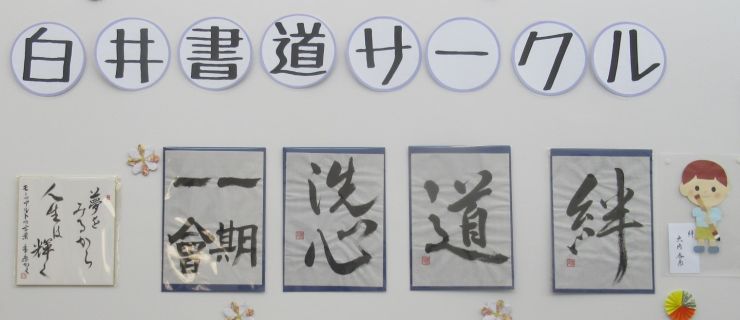 白井書道サークル
夢を
みるから
人生は
輝く
モーツアルトの言葉
一期
一會
洗心
道
絆
絆